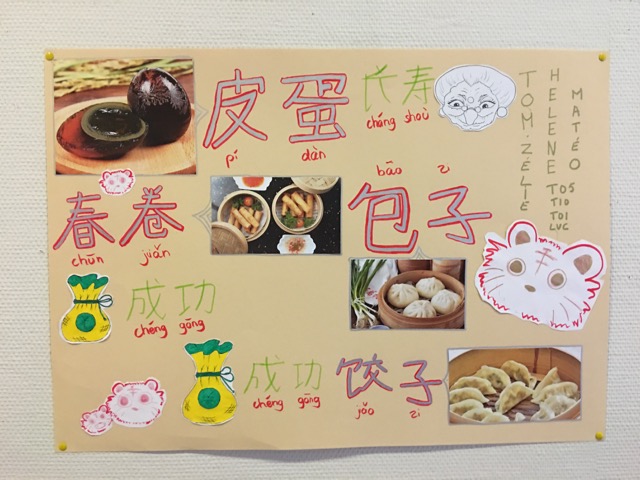 皮蛋
pí dàn
长寿
cháng shoù
TOM.ZÉLIE
HELENE
MATÉO
TOS
TIO
TOI
LUC
春卷
chūn jiǎn
bāo zi
包子
成功
chéng gāng
成功
chéng gāng
饺子
jǎo zi